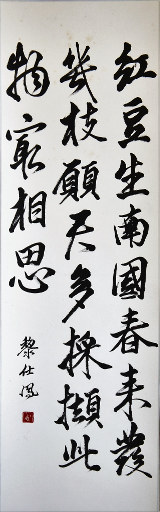 紅豆生南國春來發
幾枝願天多採擷此
物寂相思
黎仕鳳